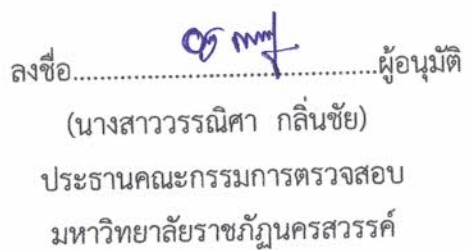 ลงชื่อ......................................ผู้อนุมัติ
(นางสาววรรณิศา กลิ่นชัย)
ประธานคณะกรรมการตรวจสอบ
มหาวิทยาลัยราชภัฏนครสวรรค์